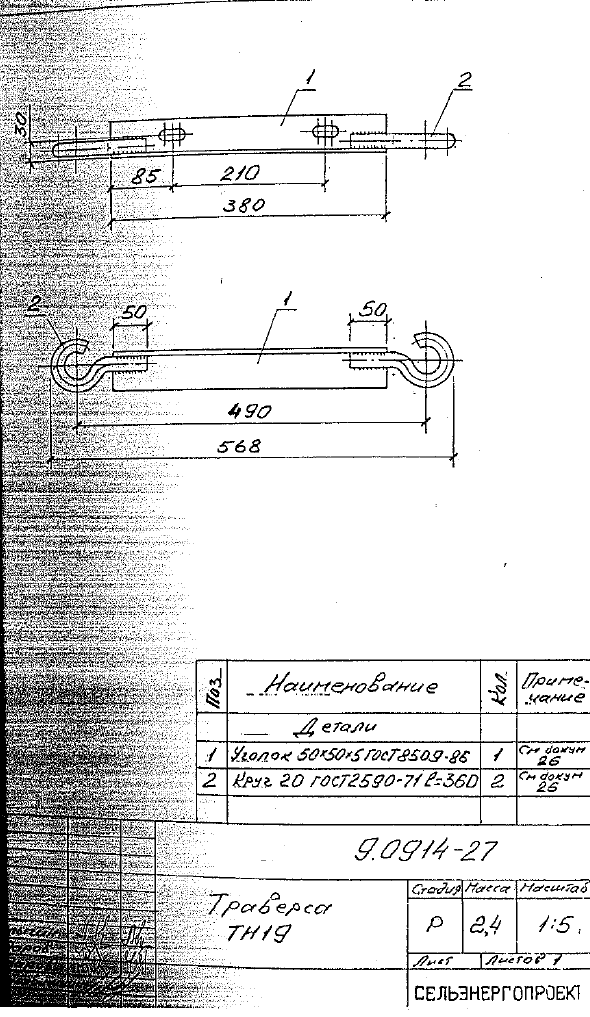 1
2
30
85
210
380
2
1
50
50
490
568
Поз
Наименование
Кол.
Приме-
чание
Детали
1 Уголок 50×50×5 ГОСТ8509-86 1 См докум
26
2 Круг 20 ГОСТ2590-71 ℓ=360 2 См докум
26
9.0914-27
Траверса
ТН19
Стадия Масса Масштаб
Р 2,4 1:5
Лист Листов 1
СЕЛЬЭНЕРГОПРОЕКТ